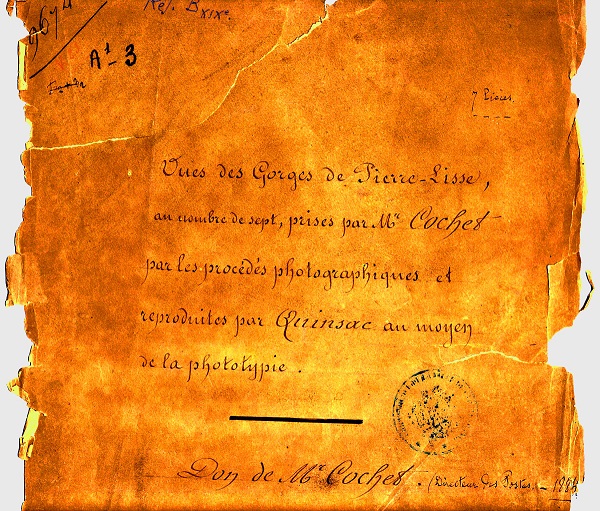 9674
Réf. B XIXe.
A1- 3
7 Pièces
Vues des Gorges de Pierre-Lisse,
au nombre de sept, prises par Mr Cochet
par les procédés photographiques et
reproduites par Quinsac au moyen
de la phototypie.
Don de Mr Cochet. (Directeur des Postes - 1884